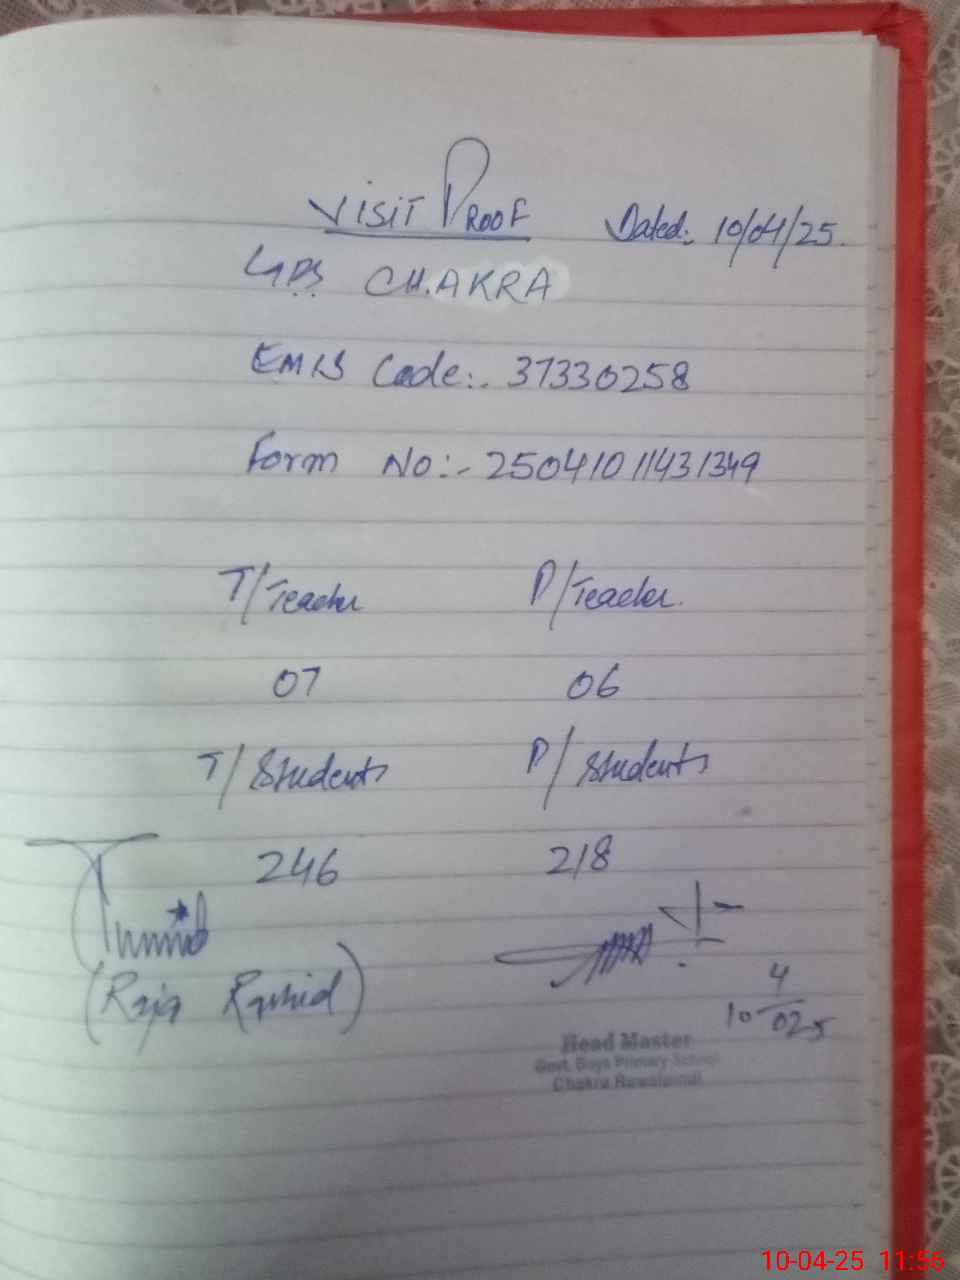 VISIT PROOF Dated: 10/04/25.
GPS CHAKRA
EMIS Code:- 37330258
Form No:- 25041011431349
T/Teacher P/Teacher.
07 06
T/Students P/Students
246 218
(Raja Rashid)
10-4-025
Head Master
Govt. Boys Primary School
Chakra Rawalpindi
10-04-25 11:56